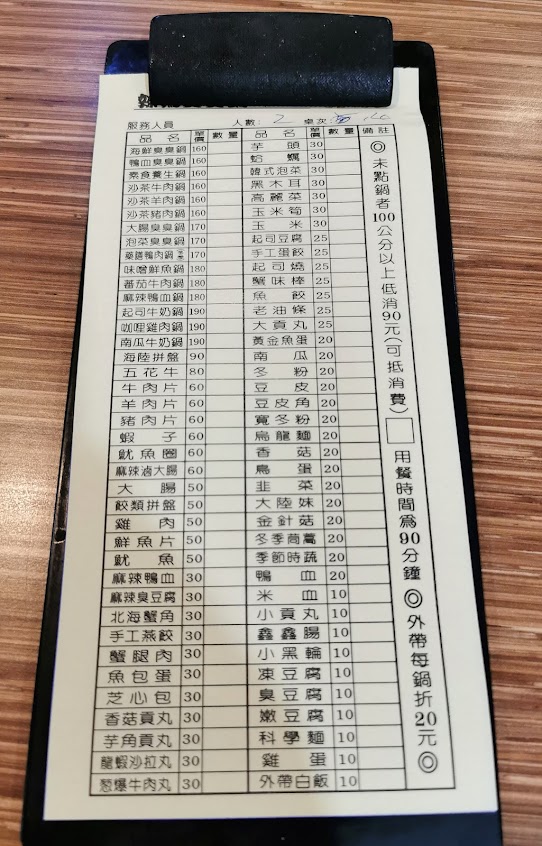 服務人員 人數: 2 桌次:
品名 單價 數量 品名 單價 數量 備註
海鮮臭臭鍋 160 芋頭 30
鴨血臭臭鍋 160 蛤蠣 30
素食養生鍋 160 韓式泡菜 30
沙茶牛肉鍋 160 黑木耳 30
沙茶羊肉鍋 160 高麗菜 30
沙茶豬肉鍋 160 玉米筍 30
大腸臭臭鍋 170 玉米 30
泡菜臭臭鍋 170 起司豆腐 25
藥膳鴨肉鍋 170 手工蛋餃 25
味噌鮮魚鍋 180 起司燒 25
番茄牛肉鍋 180 蟹味棒 25
麻辣鴨血鍋 180 魚餃 25
起司牛奶鍋 190 老油條 25
咖哩雞肉鍋 190 大貢丸 25
南瓜牛奶鍋 190 黃金魚蛋 20
海陸拼盤 90 南瓜 20
五花牛 80 冬粉 20
牛肉片 60 豆皮 20
羊肉片 60 豆皮角 20
豬肉片 60 寬冬粉 20
蝦子 60 烏龍麵 20
魷魚圈 60 香菇 20
麻辣滷大腸 60 鳥蛋 20
大腸 50 韭菜 20
餃類拼盤 50 大陸妹 20
雞肉 50 金針菇 20
鮮魚片 50 冬季茼蒿 20
魷魚 50 季節時蔬 20
麻辣鴨血 30 鴨血 20
麻辣臭豆腐 30 米血 10
北海蟹角 30 小貢丸 10
手工燕餃 30 鑫鑫腸 10
蟹腿肉 30 小黑輪 10
魚包蛋 30 凍豆腐 10
芝心包 30 臭豆腐 10
香菇貢丸 30 嫩豆腐 10
芋角貢丸 30 科學麵 10
龍蝦沙拉丸 30 雞蛋 10
蔥爆牛肉丸 30 外帶白飯 10
◎未點鍋者100公分以上低消90元(可抵消費)□用餐時間為90分鐘◎外帶每鍋折20元◎